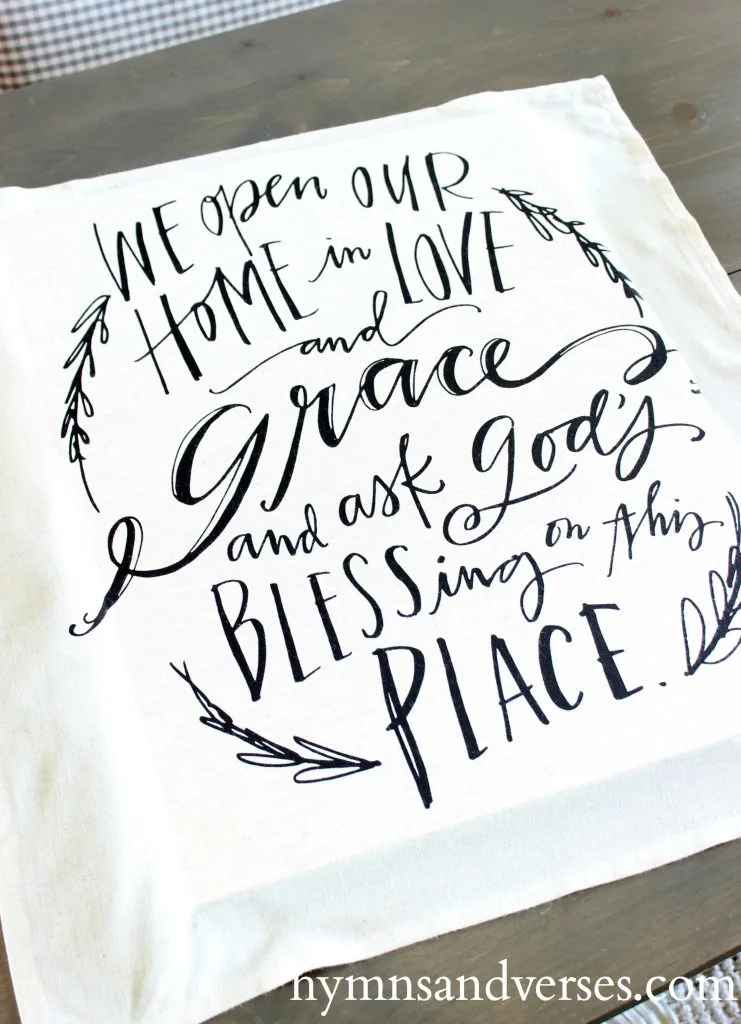 WE open OUR
HOME in LOVE
and
grace
and ask god's
BLESSing on this
PLACE.
hymnsandverses.com